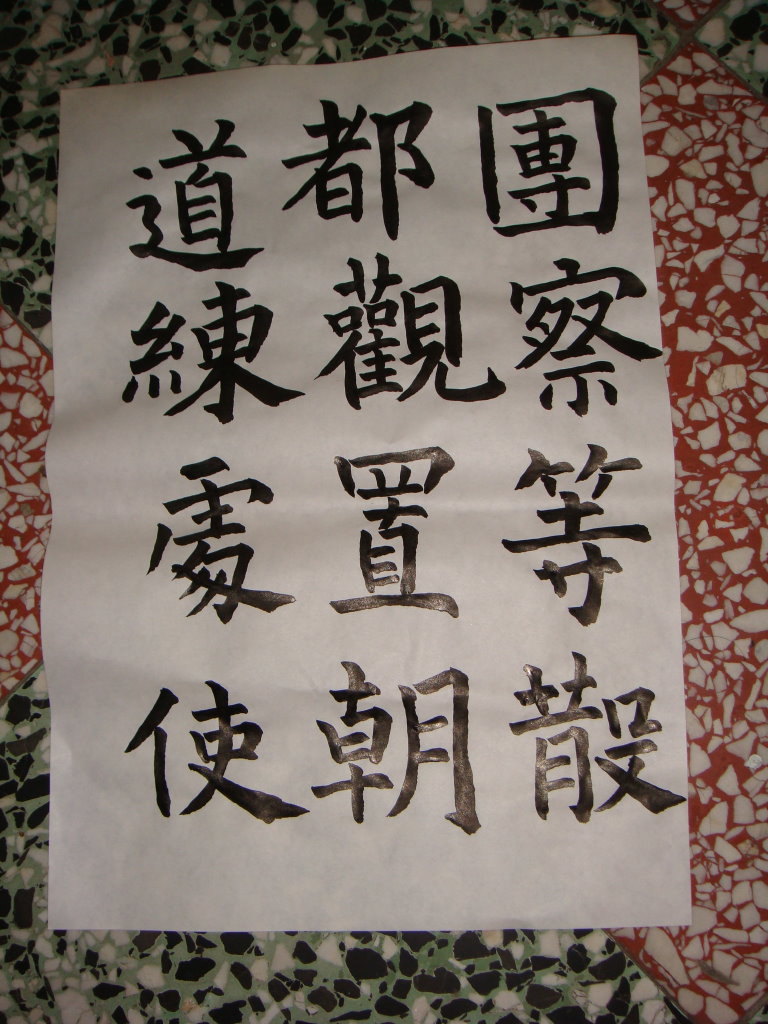 道都團
練觀察
處置等
使朝散